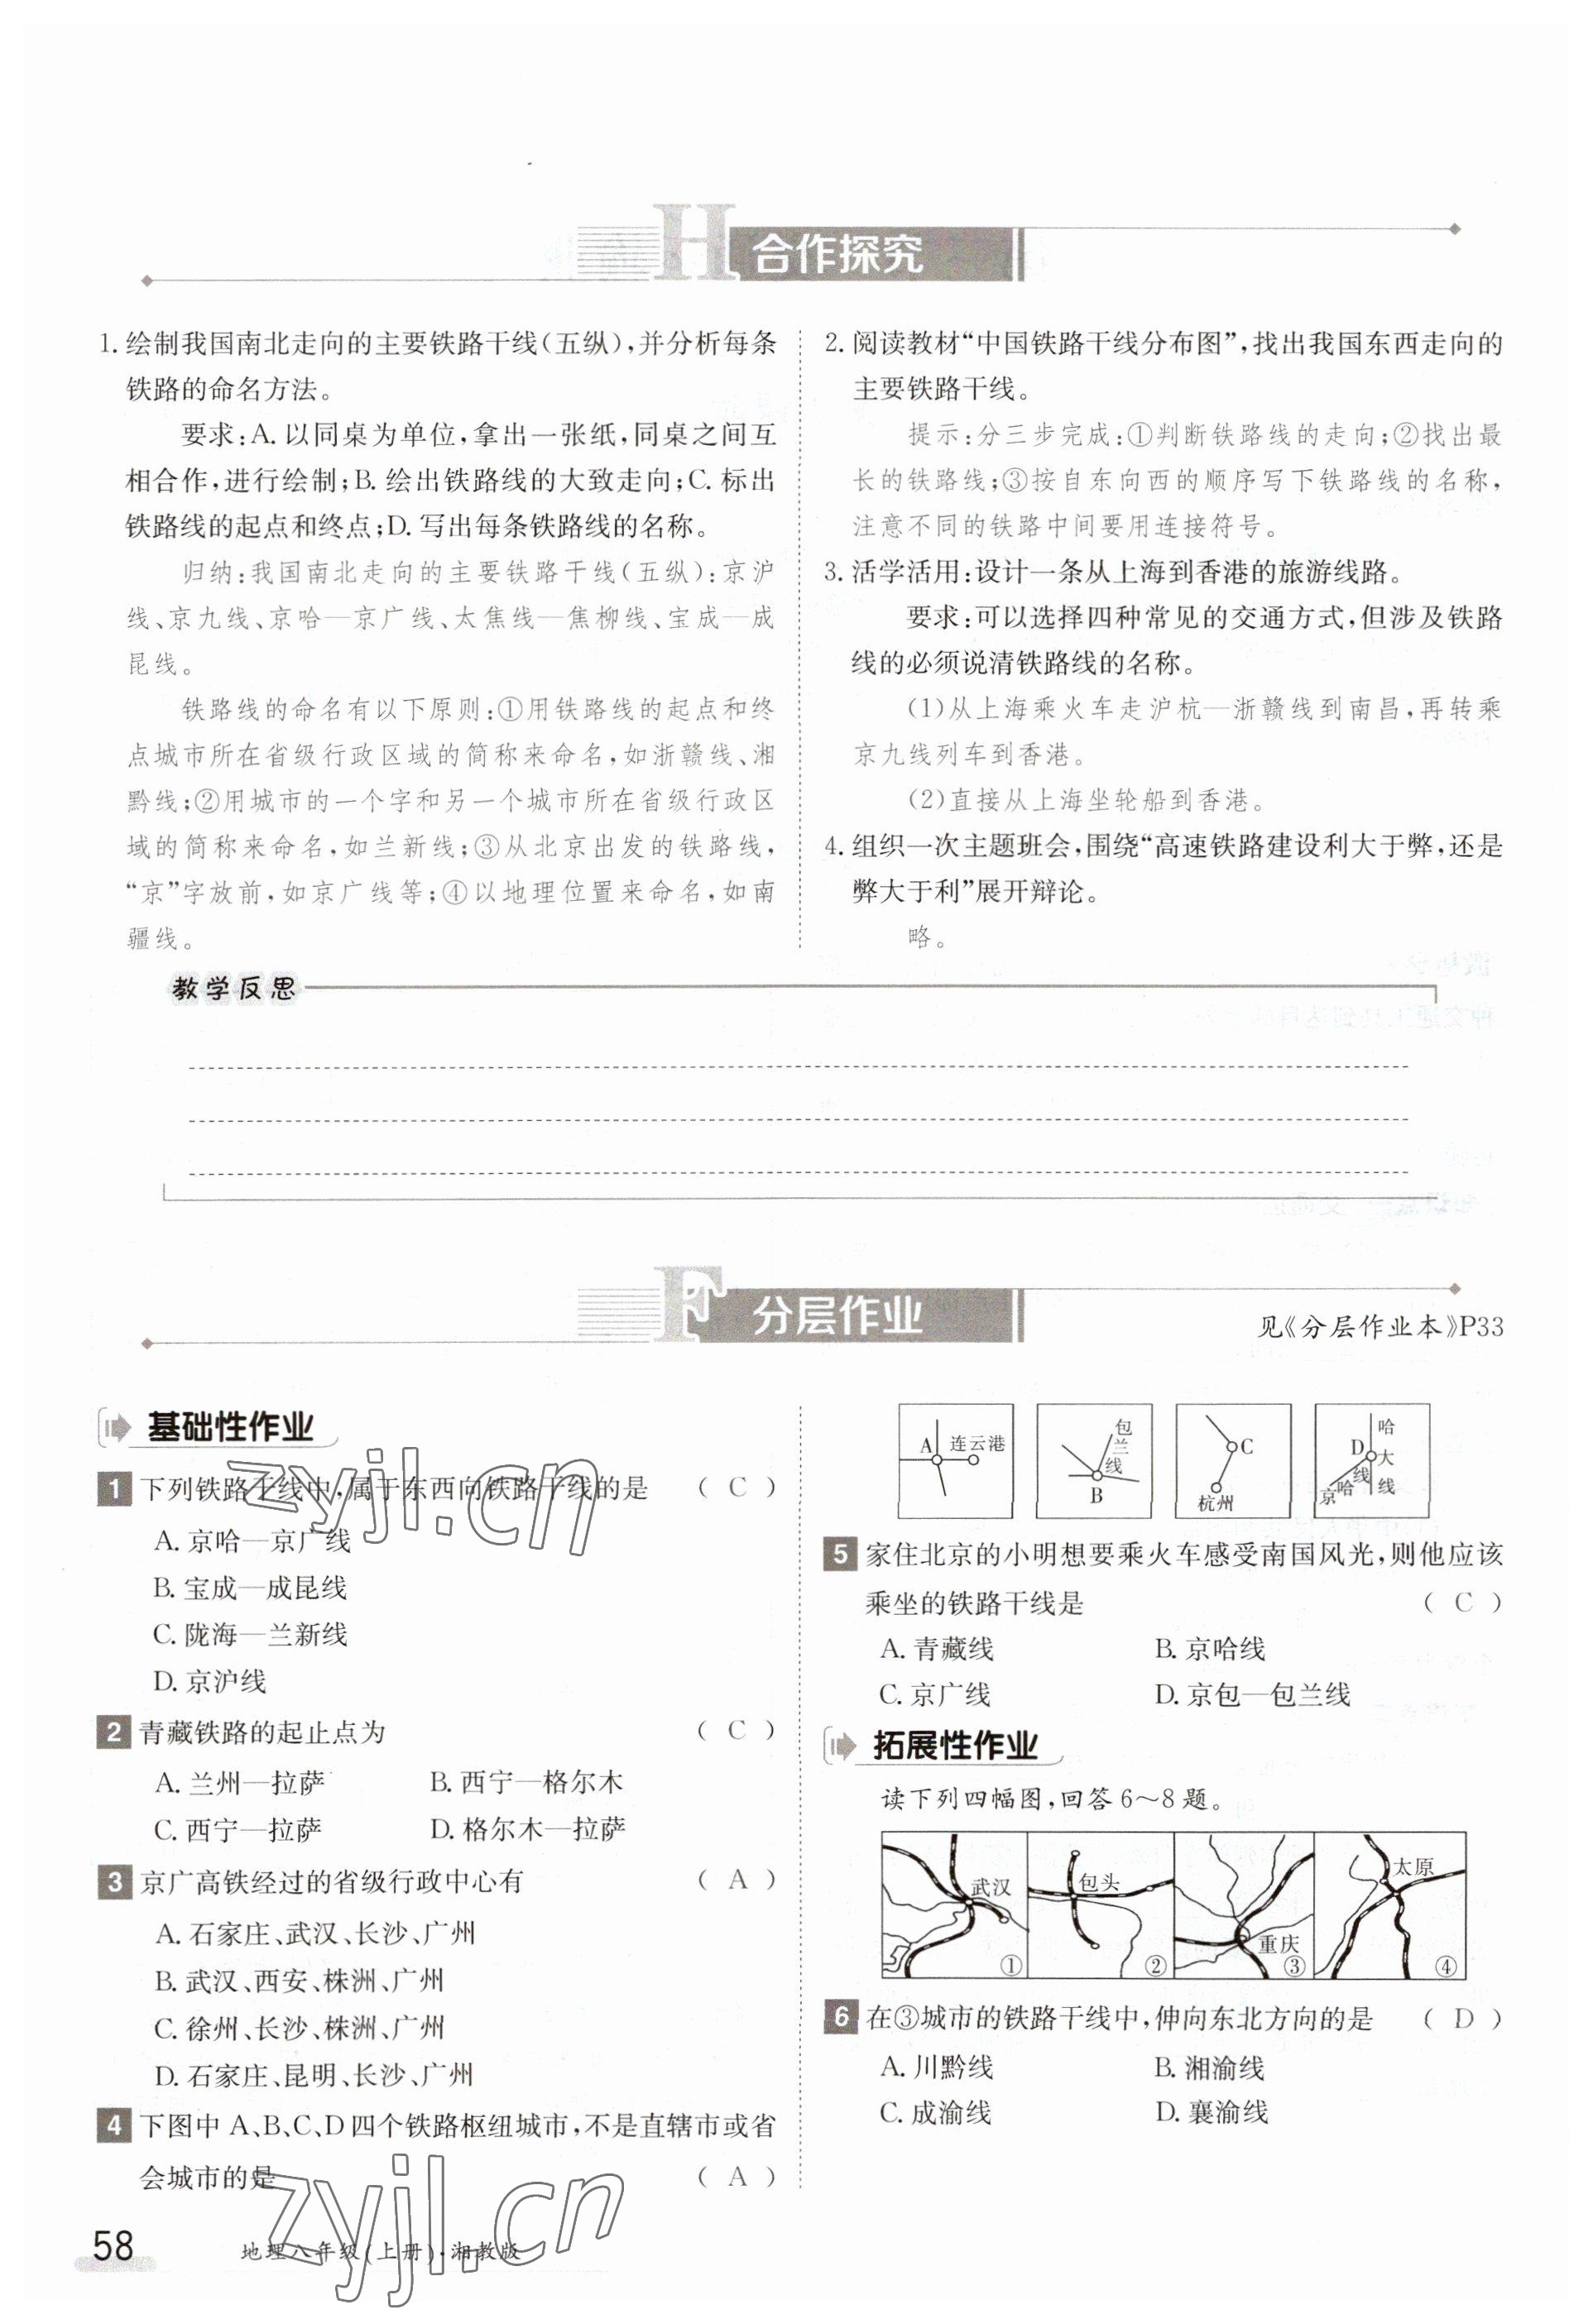 H 合作探究
1. 绘制我国南北走向的主要铁路干线(五纵),并分析每条
铁路的命名方法。
要求:A. 以同桌为单位,拿出一张纸,同桌之间互
相合作,进行绘制;B. 绘出铁路线的大致走向;C. 标出
铁路线的起点和终点;D. 写出每条铁路线的名称。
归纳:我国南北走向的主要铁路干线(五纵):京沪
线、京九线、京哈—京广线、太焦线—焦柳线、宝成—成
昆线。
铁路线的命名有以下原则:①用铁路线的起点和终
点城市所在省级行政区域的简称来命名,如浙赣线、湘
黔线;②用城市的一个字和另一个城市所在省级行政区
域的简称来命名,如兰新线;③从北京出发的铁路线,
“京”字放前,如京广线等;④以地理位置来命名,如南
疆线。
2. 阅读教材“中国铁路干线分布图”,找出我国东西走向的
主要铁路干线。
提示:分三步完成:①判断铁路线的走向;②找出最
长的铁路线;③按自东向西的顺序写下铁路线的名称,
注意不同的铁路中间要用连接符号。
3. 活学活用:设计一条从上海到香港的旅游线路。
要求:可以选择四种常见的交通方式,但涉及铁路
线的必须说清铁路线的名称。
(1)从上海乘火车走沪杭—浙赣线到南昌,再转乘
京九线列车到香港。
(2)直接从上海坐轮船到香港。
4. 组织一次主题班会,围绕“高速铁路建设利大于弊,还是
弊大于利”展开辩论。
略。
教学反思
F 分层作业
见《分层作业本》P33
基础性作业
1 下列铁路干线中,属于东西向铁路干线的是 ( C )
A. 京哈—京广线
B. 宝成—成昆线
C. 陇海—兰新线
D. 京沪线
2 青藏铁路的起止点为 ( C )
A. 兰州—拉萨 B. 西宁—格尔木
C. 西宁—拉萨 D. 格尔木—拉萨
3 京广高铁经过的省级行政中心有 ( A )
A. 石家庄、武汉、长沙、广州
B. 武汉、西安、株洲、广州
C. 徐州、长沙、株洲、广州
D. 石家庄、昆明、长沙、广州
4 下图中 A、B、C、D四个铁路枢纽城市,不是直辖市或省
会城市的是 ( A )
A 连云港
包兰线 B
C 杭州
哈大线 D 京哈线
5 家住北京的小明想要乘火车感受南国风光,则他应该
乘坐的铁路干线是 ( C )
A. 青藏线 B. 京哈线
C. 京广线 D. 京包—包兰线
拓展性作业
读下列四幅图,回答6~8题。
武汉 ①
包头 ②
重庆 ③
太原 ④
6 在③城市的铁路干线中,伸向东北方向的是 ( D )
A. 川黔线 B. 湘渝线
C. 成渝线 D. 襄渝线
zyjl.cn
zyjl.cn
58 地理八年级(上册)·湘教版